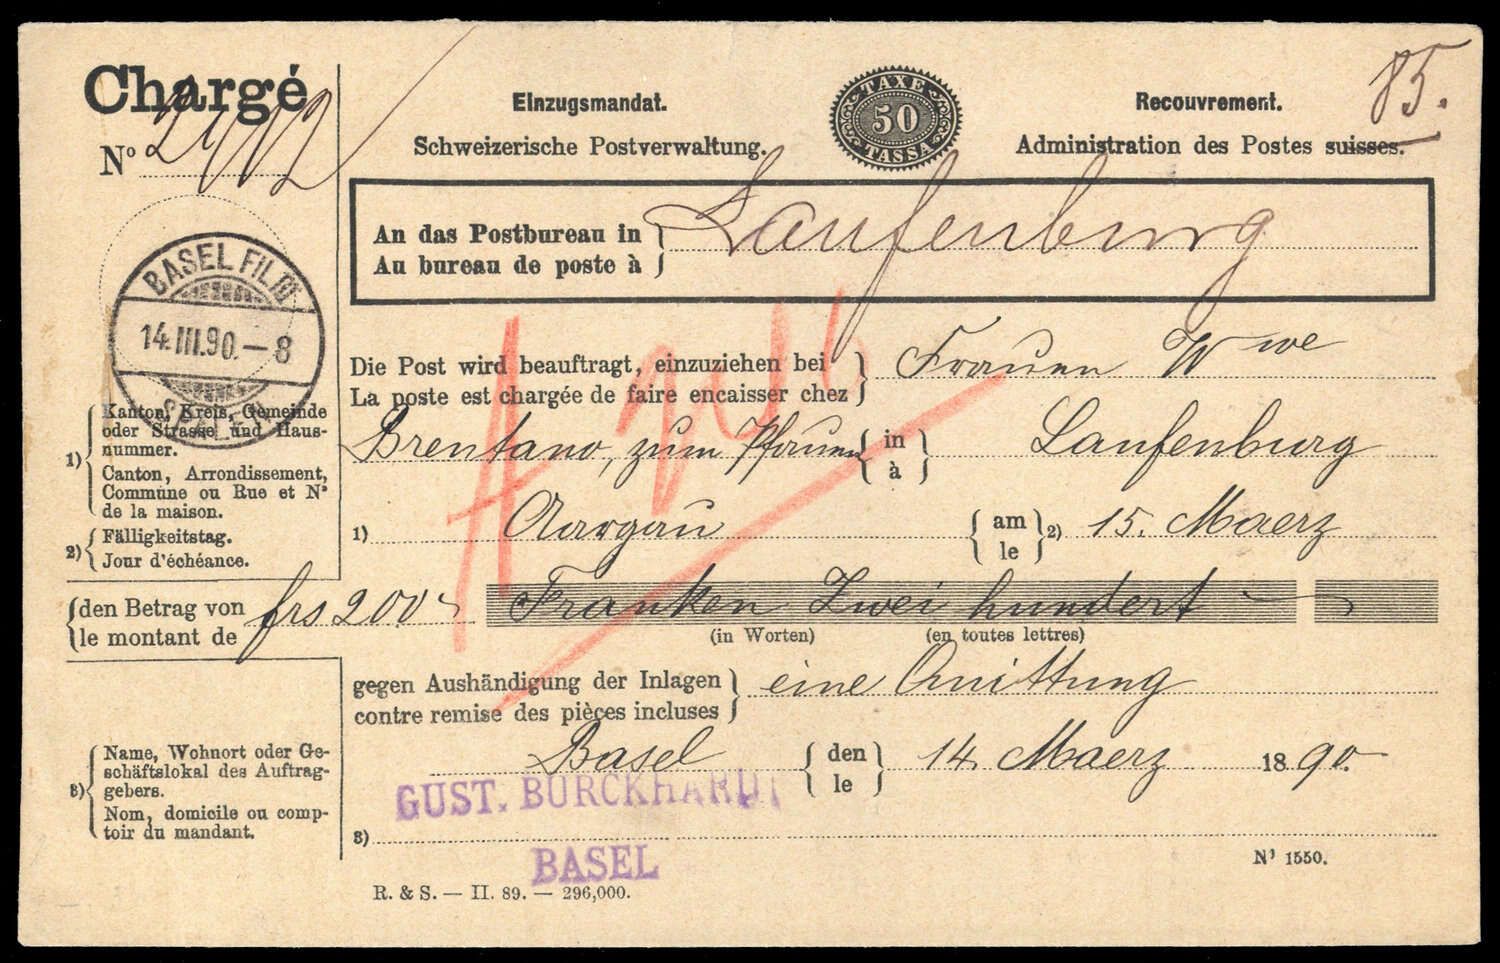 Chargé
Nº
85.
Einzugsmandat.
Schweizerische Postverwaltung.
TAXE
50
TASSA
Recouvrement.
Administration des Postes suisses.
An das Postbureau in
Au bureau de poste à
Laufenburg
BASEL FIL.
14.III.90.—8
Die Post wird beauftragt, einzuziehen bei
La poste est chargée de faire encaisser chez
Frauen Wwe
Brentano, zum Pfauen in à Laufenburg
1) Aargau am le 2) 15. Maerz
1) Kanton, Kreis, Gemeinde
oder Strasse und Haus-
nummer.
Canton, Arrondissement,
Commune ou Rue et Nº
de la maison.
2) Fälligkeitstag.
Jour d'échéance.
den Betrag von
le montant de
frs 200 Franken Zwei hundert
(in Worten) (en toutes lettres)
gegen Aushändigung der Inlagen
contre remise des pièces incluses
eine Quittung
Basel den le 14. Maerz 1890.
3) Name, Wohnort oder Ge-
schäftslokal des Auftrag-
gebers.
Nom, domicile ou comp-
toir du mandant.
GUST. BURCKHARDT
3)
BASEL
Nº 1550.
R. & S. — II. 89. — 296,000.